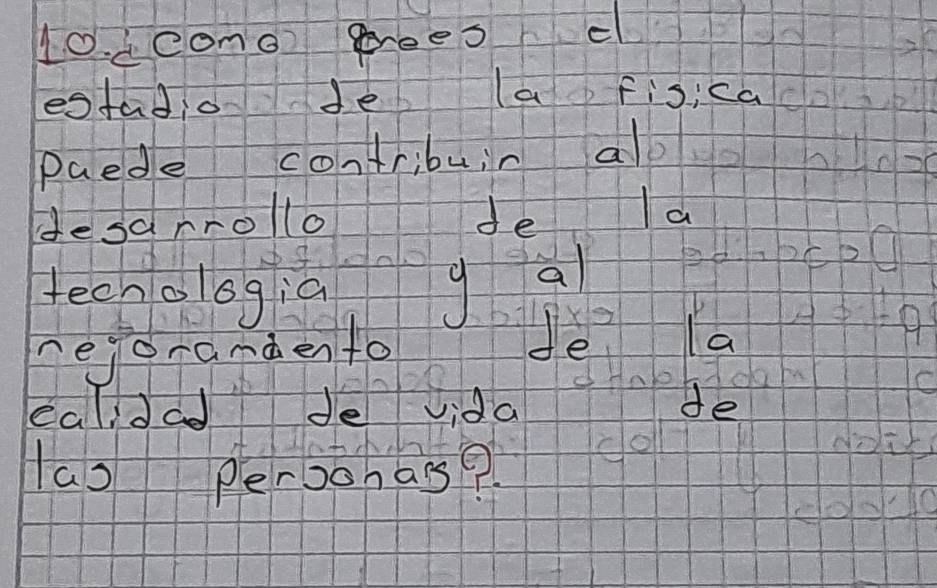 10.¿como crees el
estudio de la fisica
puede contribuir al
desarrollo de la
tecnologia y al
mejoramiento de la
calidad de vida de
las personas?